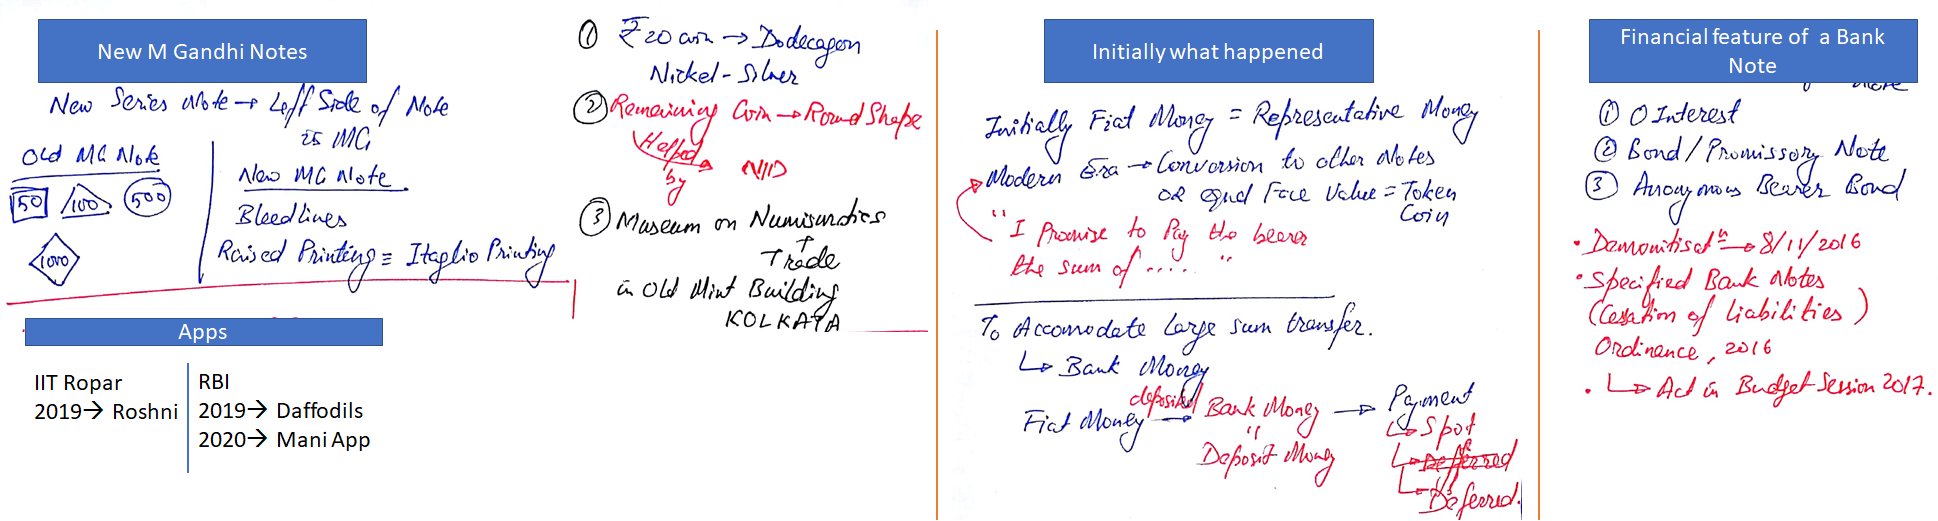 New M Gandhi Notes
New Series Note → Left Side of Note
is MG
Old MG Note
50 100 500
1000
New MG Note
Bleedlines
Raised Printing ≡ Itaglio Printing
Apps
IIT Ropar
2019→ Roshni
RBI
2019→ Daffodils
2020→ Mani App
① ₹20 coin → Dodecagon
Nickel-Silver
② Remaining Coin → Round Shape
Helped
by NID
③ Museum on Numismatics
↑
Trade
in Old Mint Building
KOLKATA
Initially what happened
Initially Fiat Money = Representative Money
Modern Era → Conversion to other Notes
or equal Face Value = Token
Coin
"I Promise to Pay the bearer
the sum of ..... "
To Accomodate Large sum transfer.
↳ Bank Money
deposited
Fiat Money → Bank Money → Payment
"
Deposit Money
↳ Spot
↳ Deferred
↳ Deferred.
Financial feature of a Bank
Note
Note
① 0 Interest
② Bond/Promissory Note
③ Anonymous Bearer Bond
• Demonitisatⁿ → 8/11/2016
• Specified Bank Notes
(Cessation of Liabilities)
Ordinance, 2016
• ↳ Act in Budget Session 2017.